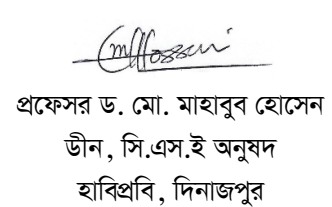 প্রফেসর ড. মো. মাহাবুব হোসেন
ডীন, সি.এস.ই অনুষদ
হাবিপ্রবি, দিনাজপুর